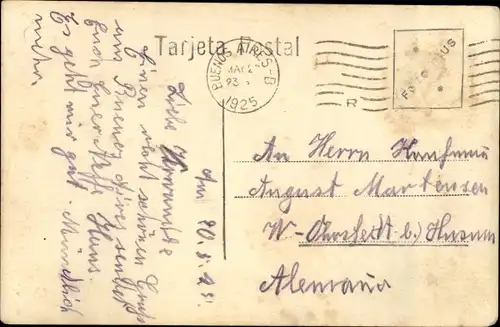 Tarjeta Postal
BUENOS AIRES - B
MAY 2
23
1925
R
Am 20.5.25.
Liebe Verwandte
Einen recht schönen Gruß
aus Buenos Aires sendet
Euch Euer Neffe Hans.
Es geht mir gut. Mündlich
mehr.
An Herrn Kaufmann
August Martensen
W-Ohrstedt b/Husum
Alemania